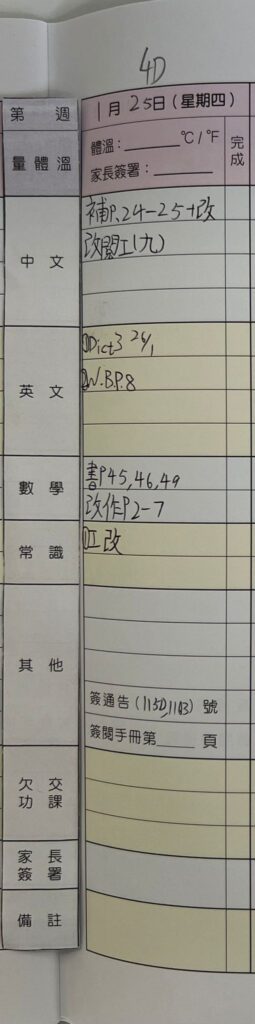 4D
第 週
1月25日(星期四)
量體溫
體溫：______℃/℉
完成
家長簽署：______
中文
補P.24-25+改
改閱工(九)
英文
①Dict3 26/1
②W.B.P.8
數學
書P45,46,49
改作P2-7
常識
①工改
其他
簽通告(115D,1183)號
簽閱手冊第____頁
欠交功課
家長簽署
備註